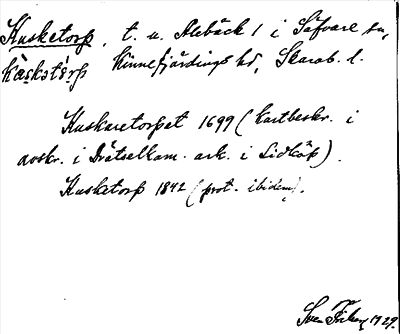 Husketorp, t. u. Slebäck 1 i Säfvare sn,
Kinnefjärdings hd, Skarab. l.
Huskaretorpet 1699 (kartbeskr. i
avskr. i Drätselkam. ark. i Lidköp).
Husketorp 1842 (prot. ibidem).
Sven 1929.